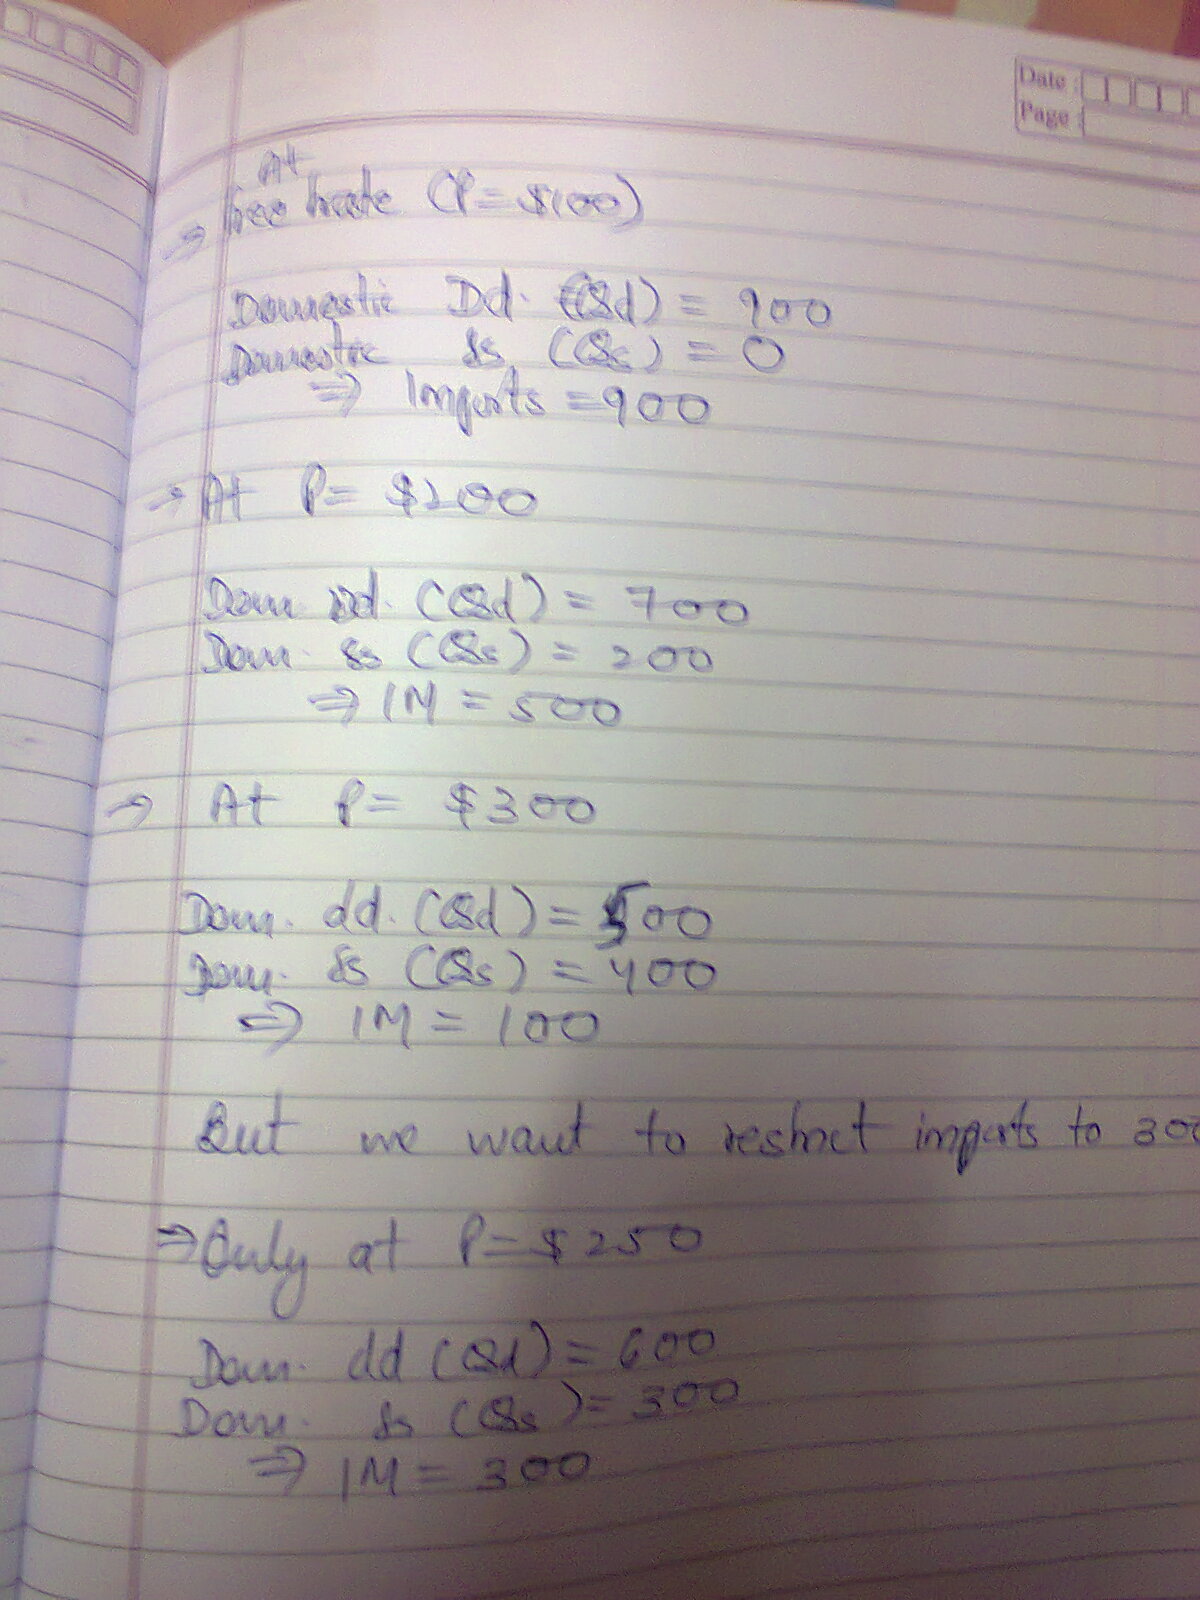 Date :
Page :
At
free trade (P = $100)
⇒
Domestic Dd. (Qd) = 900
Domestic Ss (Qs) = 0
⇒ Imports = 900
→ At P = $200
Dom. Dd. (Qd) = 700
Dom. Ss (Qs) = 200
⇒ IM = 500
→ At P = $300
Dom. dd. (Qd) = 500
Dom. Ss (Qs) = 400
⇒ IM = 100
But we want to restrict imports to 300
⇒ Only at P = $250
Dom. dd (Qd) = 600
Dom. Ss (Qs) = 300
⇒ IM = 300